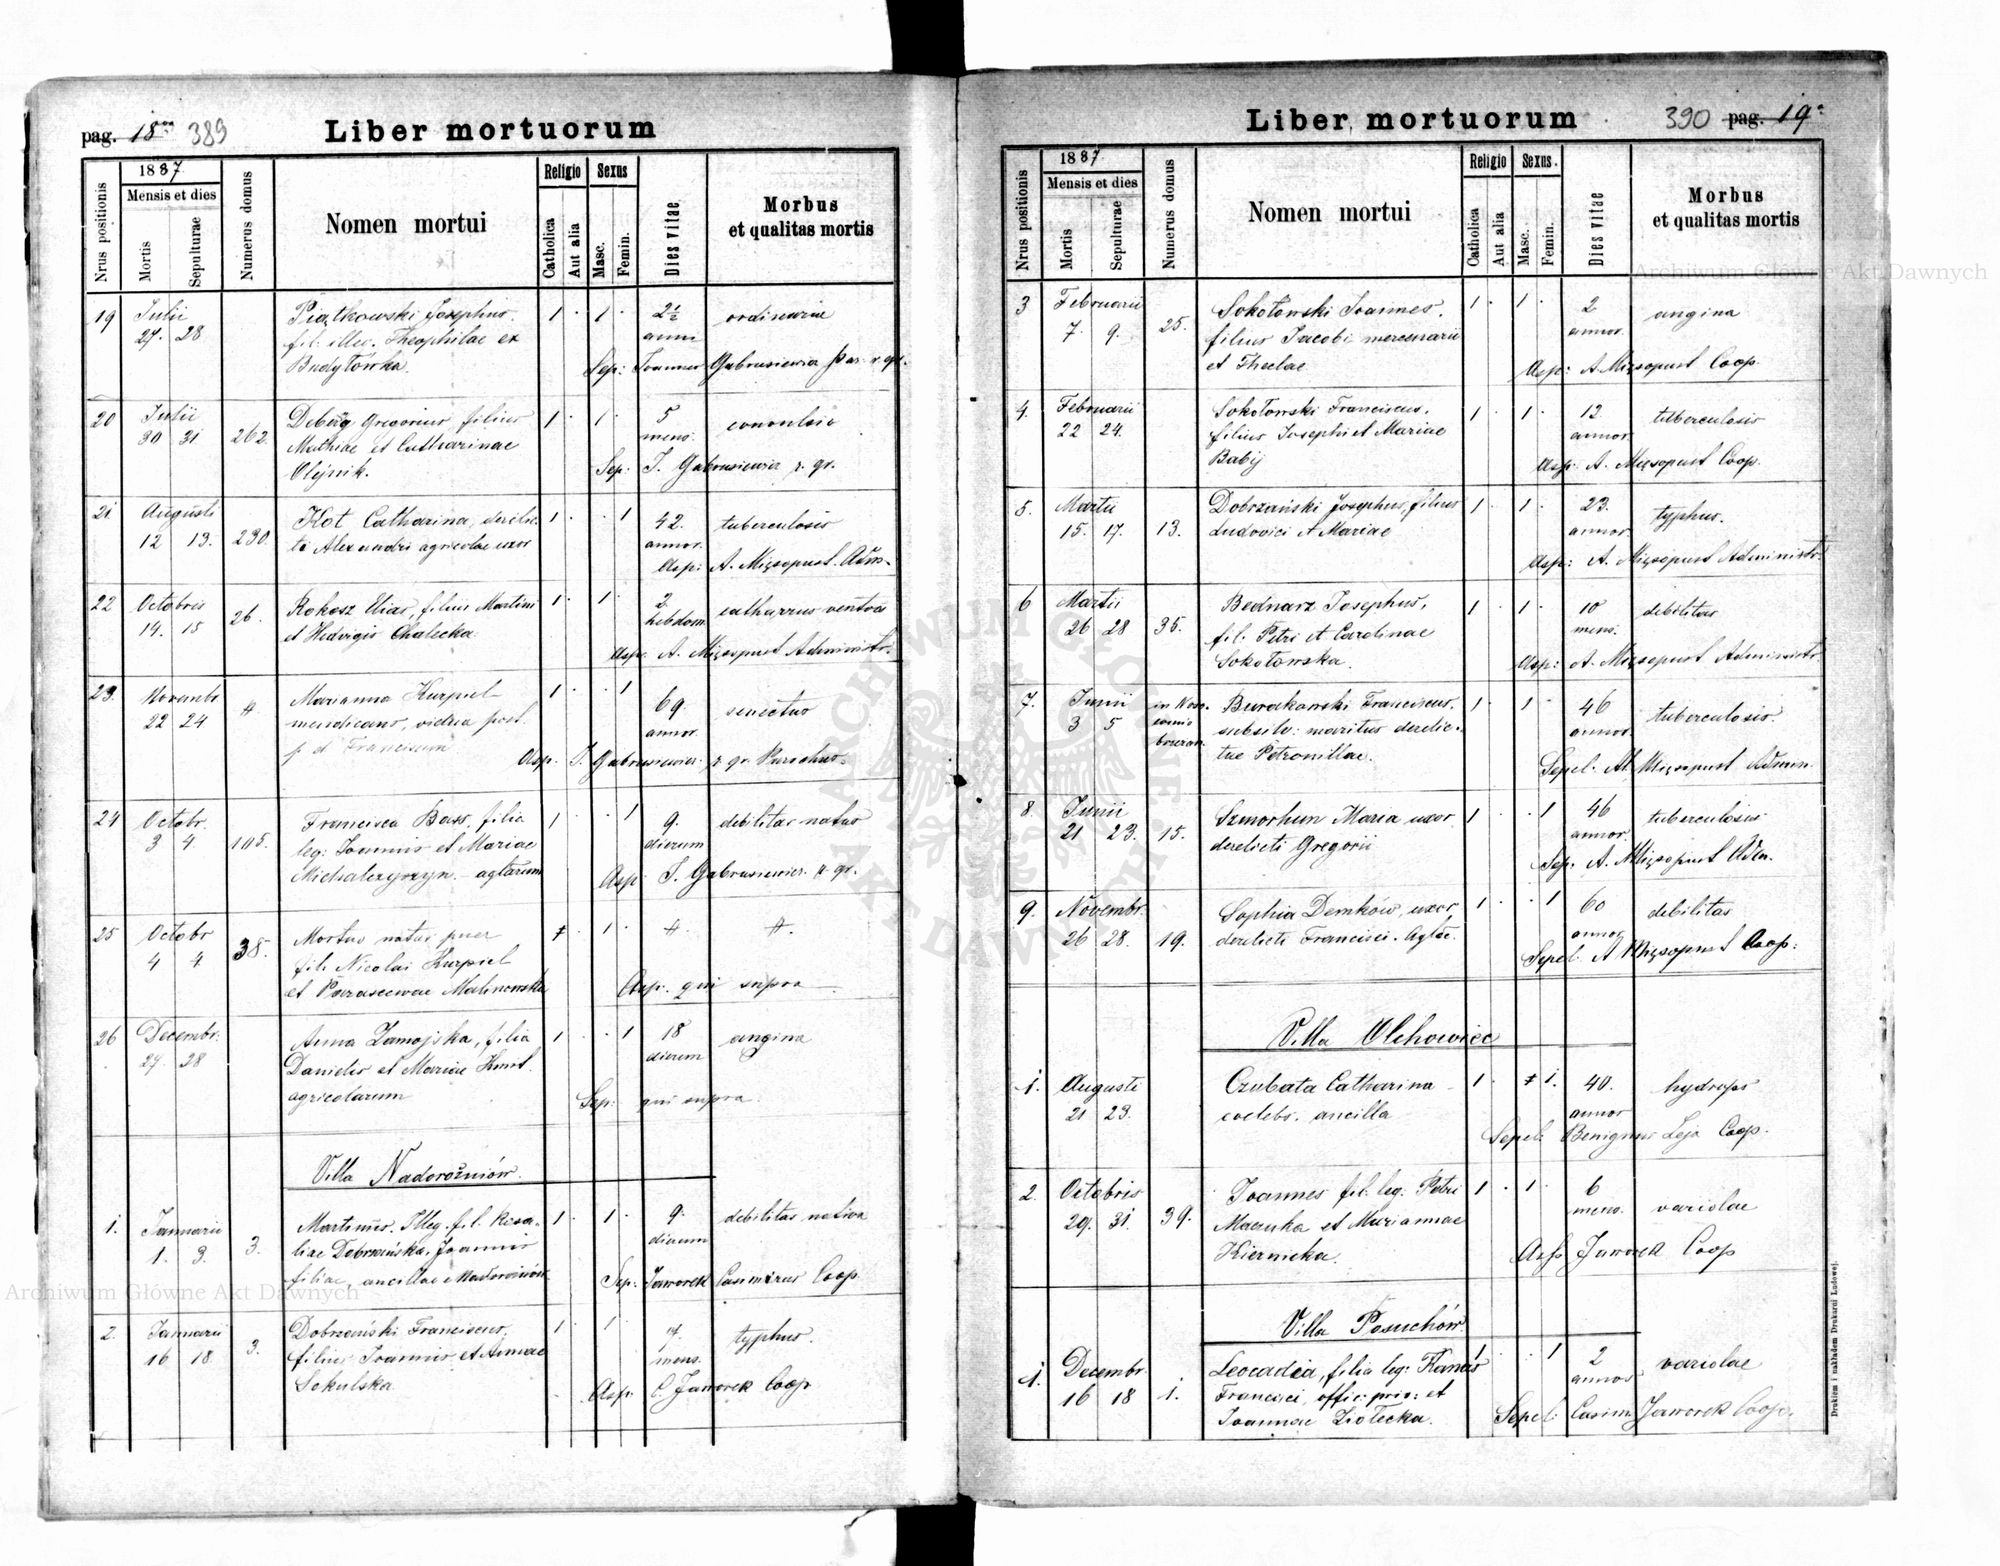 pag. 18 389
Liber mortuorum
Nrus positionis
1887.
Mensis et dies
Mortis
Sepulturae
Numerus domus
Nomen mortui
Religio
Catholica
Aut alia
Sexus
Masc.
Femin.
Dies vitae
Morbus
et qualitas mortis
19 Julii Piątkowski Josephus, 1 · 1 · 2½ ordinariae
27. 28 fil. illeg. Theophilae ex annor
Budyłówka. Sep: Joannes Gabrusiewicz par. r. gr.
20 Julii Gregorius, filius 1 · 1 · 5
30 31 262. Mathiae et Catharinae mens.
Olejnik. Sep: J. Gabrusiewicz r. gr.
21. Augusti Kot Catharina, derelic- 1 · · 1 42. tuberculosis
12 13. 230. ti Alexandri agricolae uxor annor.
Asp: A. Mięsopust. Adm.
22 Octobris Rokosz Elias, filius Martini 1 · 1 · 2. catharrus
14. 15 26. et Hedvigis Chalecka. hebdom.
Asp. A. Mięsopust Administr.
23. Novembr. Marianna Kurpiel 1 · · 1 69 senectus
22 24 # mendicans, vidua post annor.
p. d. Franciscum Asp. J. Gabrusiewicz. r. gr. Parochus
24 Octobr. Francisca Bass, filia 1 · 1 9. debilitas
3 4. 105. leg: Joannis et Mariae dierum
Michalczyszyn. - Asp J. Gabrusiewicz. r. gr.
25 Octobr Mortuo natus puer 1 · #. #.
4 4 38. fil. Nicolai Kurpiel
et Parascewae Malinowska Asp. qui supra
26 Decembr. Anna Zamojska, filia 1 · · 1 18 angina
27 28 Danielis et Mariae dierum
agricolarum Sep: qui supra
Villa Nadorożniów.
1. Januarii Martinus. Illeg. fil. Rosa- 1 · 1 · 9. debilitas nativa
1. 3. 3. liae Dobrzańska, Joannis dierum
filiae, ancillae Sep: Jaworek Casimirus Coop
2. Januarii Dobrzański Franciscus, 1 · 1 · typhus.
16 18 3. filius Joannis et Annae mens.
Sokulska Asp: C. Jaworek Coop
Liber mortuorum
390 pag. 19
Nrus positionis
1887.
Mensis et dies
Mortis
Sepulturae
Numerus domus
Nomen mortui
Religio
Catholica
Aut alia
Sexus.
Masc.
Femin.
Dies vitae
Morbus
et qualitas mortis
3 Februarii Sokołowski Joannes. 1 · 1 · 2 angina
7. 9. 25. filius Jacobi mercenarii annor.
et Theclae Asp: A. Mięsopust Coop.
4. Februarii Sokołowski Franciscus. 1 · 1 · 12. tuberculosis
22 24. filius Josephi et Mariae annor.
Babij Asp: A. Mięsopust Coop.
5. Martii Dobrzański Josephus, filius 1 · 1 · 23. typhus.
15. 17. 13. Ludovici et Mariae annor.
Asp: A. Mięsopust Administr.
6 Martii Bednarz Josephus, 1 · 1 · 10 debilitas
26 28 35. fil. Petri et Carolinae mens.
Sokołowska. Asp: A. Mięsopust Administr.
7. Junii in Noso- Burakowski Franciscus, 1 · 1 · 46 tuberculosis.
3 5 comio maritus derelic- annor.
brzezan. tae Petronillae. Sepel. A. Mięsopust Admin.
8. Junii Szmorhun Maria uxor 1 · · 1 46 tuberculosis
21 23. 15. derelicti Gregorii annor.
Sep. A. Mięsopust Adm.
9. Novembr. Sophia Demków, uxor 1 · · 1 60 debilitas
26 28. 19. derelicti Francisci. annor.
Sepel. A. Mięsopust Coop:
Villa Olchowiec
1. Augusti Czubata Catharina 1 · 1. 40. hydrops
21 23. coelebs. ancilla annor
Sepel: Benignus Leja Coop.
2. Octobris Joannes fil. leg: Petri 1 · 1 · 6 variolae
29. 31. 39. et Mariannae mens.
Kiernicka. Asp Jaworek Coop
Villa Posuchów.
1. Decembr. Leocadia, filia leg: 1 · · 1 2 variolae
16 18 1. Francisci, offic: priv: et annor
Joannae Ziołecka. Sepel: Casim. Jaworek Coop.
Drukiem i nakładem Drukarni Ludowej.
Archiwum Główne Akt Dawnych
Archiwum Główne Akt Dawnych
ARCHIWUM GŁÓWNE AKT DAWNYCH